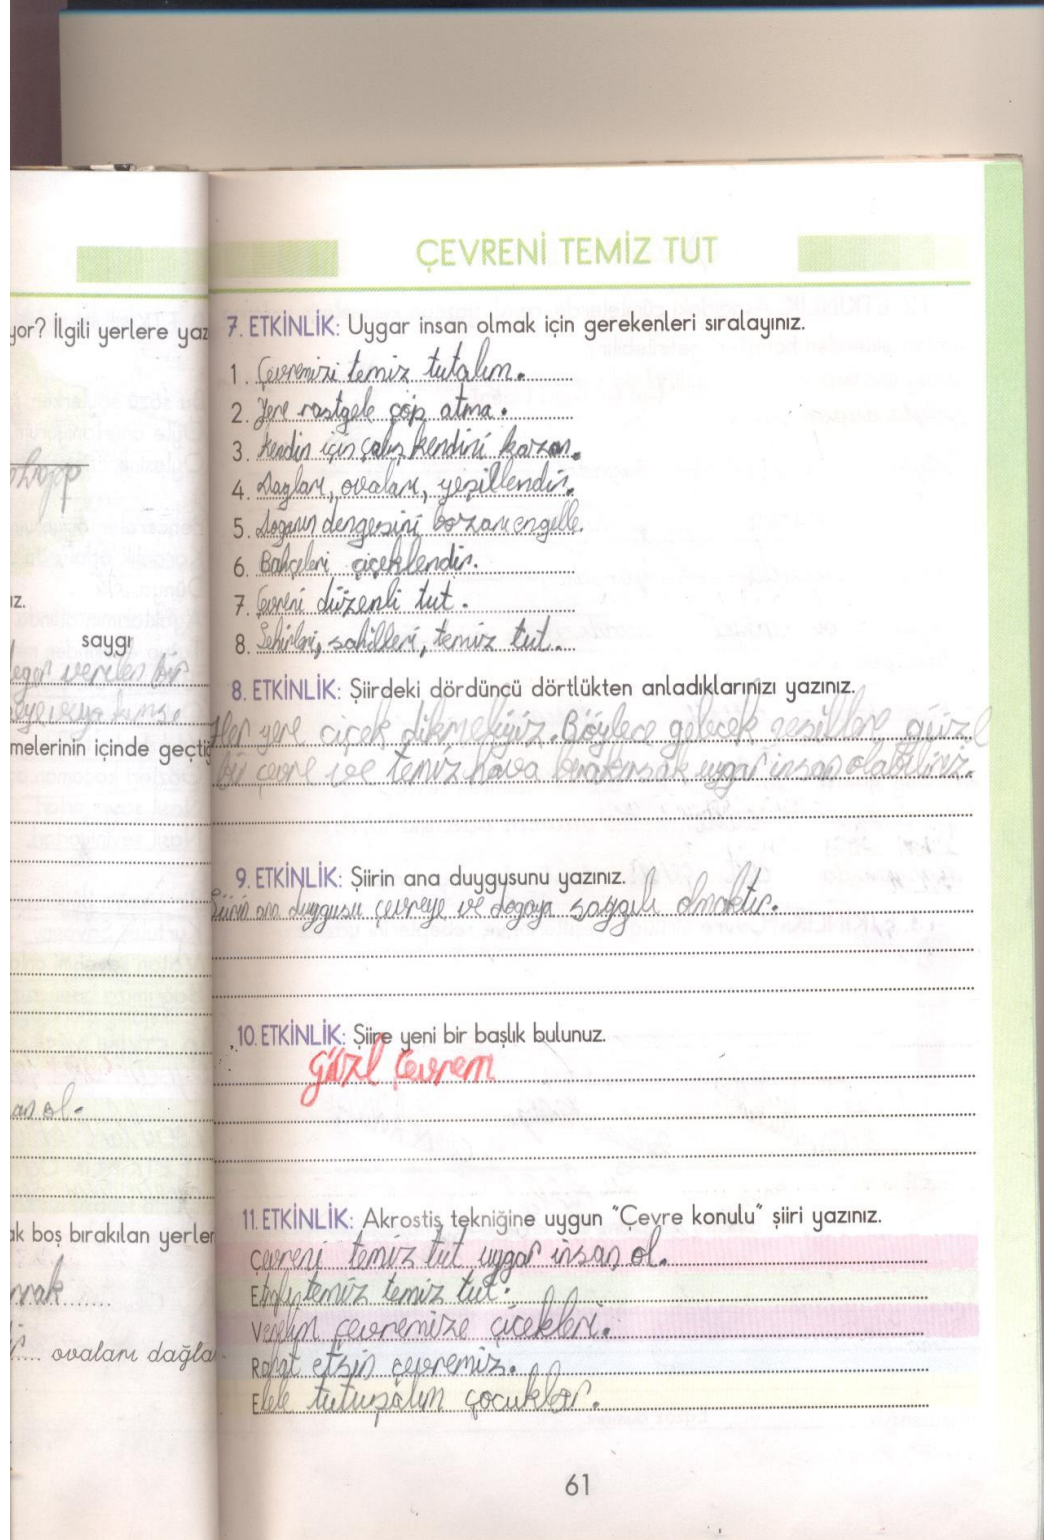 ÇEVRENİ TEMİZ TUT
yor? İlgili yerlere yaz
ız.
saygı
değer verilen bir
melerinin içinde geçtiğ
an ol.
ak boş bırakılan yerler
ovaları dağla
7. ETKİNLİK: Uygar insan olmak için gerekenleri sıralayınız.
1. Çevremizi temiz tutalım.
2. Yere rastgele çöp atma.
3. Kendin için çalış kendini kazan.
4. Dağları, ovaları, yeşillendir.
5. Doğanın dengesini bozanı engelle.
6. Bahçeleri çiçeklendir.
7. Çevreni düzenli tut.
8. Şehirleri, sahilleri, temiz tut.
8. ETKİNLİK: Şiirdeki dördüncü dörtlükten anladıklarınızı yazınız.
Her yere çiçek dikmeliyiz. Böylece gelecek nesillere güzel
bir çevre ve temiz hava bırakırsak uygar insan olabiliriz.
9. ETKİNLİK: Şiirin ana duygusunu yazınız.
Şiirin ana duygusu çevreye ve doğaya saygılı olmaktır.
10. ETKİNLİK: Şiire yeni bir başlık bulunuz.
Güzel Çevrem
11. ETKİNLİK: Akrostiş tekniğine uygun "Çevre konulu" şiiri yazınız.
Çevreni temiz tut uygar insan ol.
temiz temiz tut.
Verelim çevremize çiçekleri.
Rahat etsin çevremiz.
Elele tutuşalım çocuklar.
61